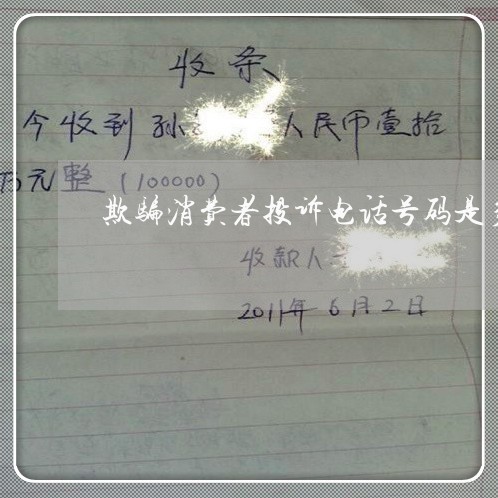 收条
今收到孙 人民币壹拾
万元整（100000）
欺骗消费者投诉电话号码是
收款人
2011年6月2日